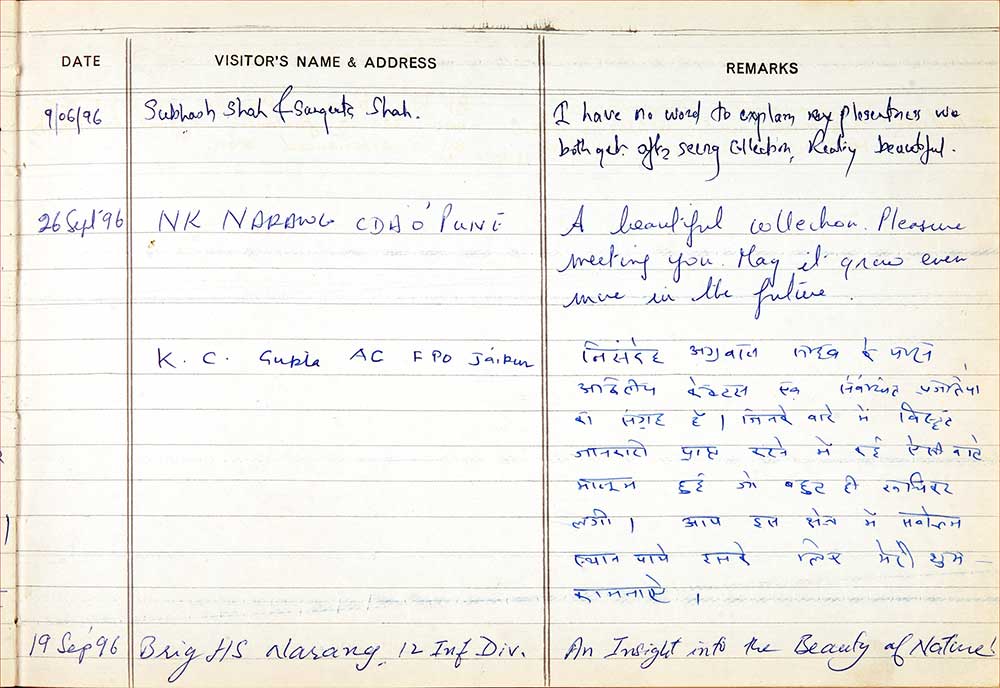 DATE VISITOR'S NAME & ADDRESS REMARKS
9/06/96 Subhash Shah & Sangeeta Shah. I have no word to explain my plesentness we
both get after seeing collection, Really beautiful.
26 Sept 96 NK NARANG CDA O' PUNE A beautiful collection. Pleasure
meeting you. May it grow even
more in the future.
K. C. Gupta AC FPO Jaipur निसंदेह अग्रवाल साहब के पास
अद्वितीय केक्टस एवं संबंधित प्रजातियां
का संग्रह है। जिनके बारे में विस्तृत
जानकारी प्राप्त करने में कई ऐसी बाते
मालूम हुई जो बहुत ही रूचिकर
लगी। आप इस क्षेत्र में सर्वोत्तम
स्थान पाये इसके लिए मेरी शुभ -
कामनाऐं ।
19 Sep 96 Brig HS Narang, 12 Inf Div. An Insight into the Beauty of Nature!